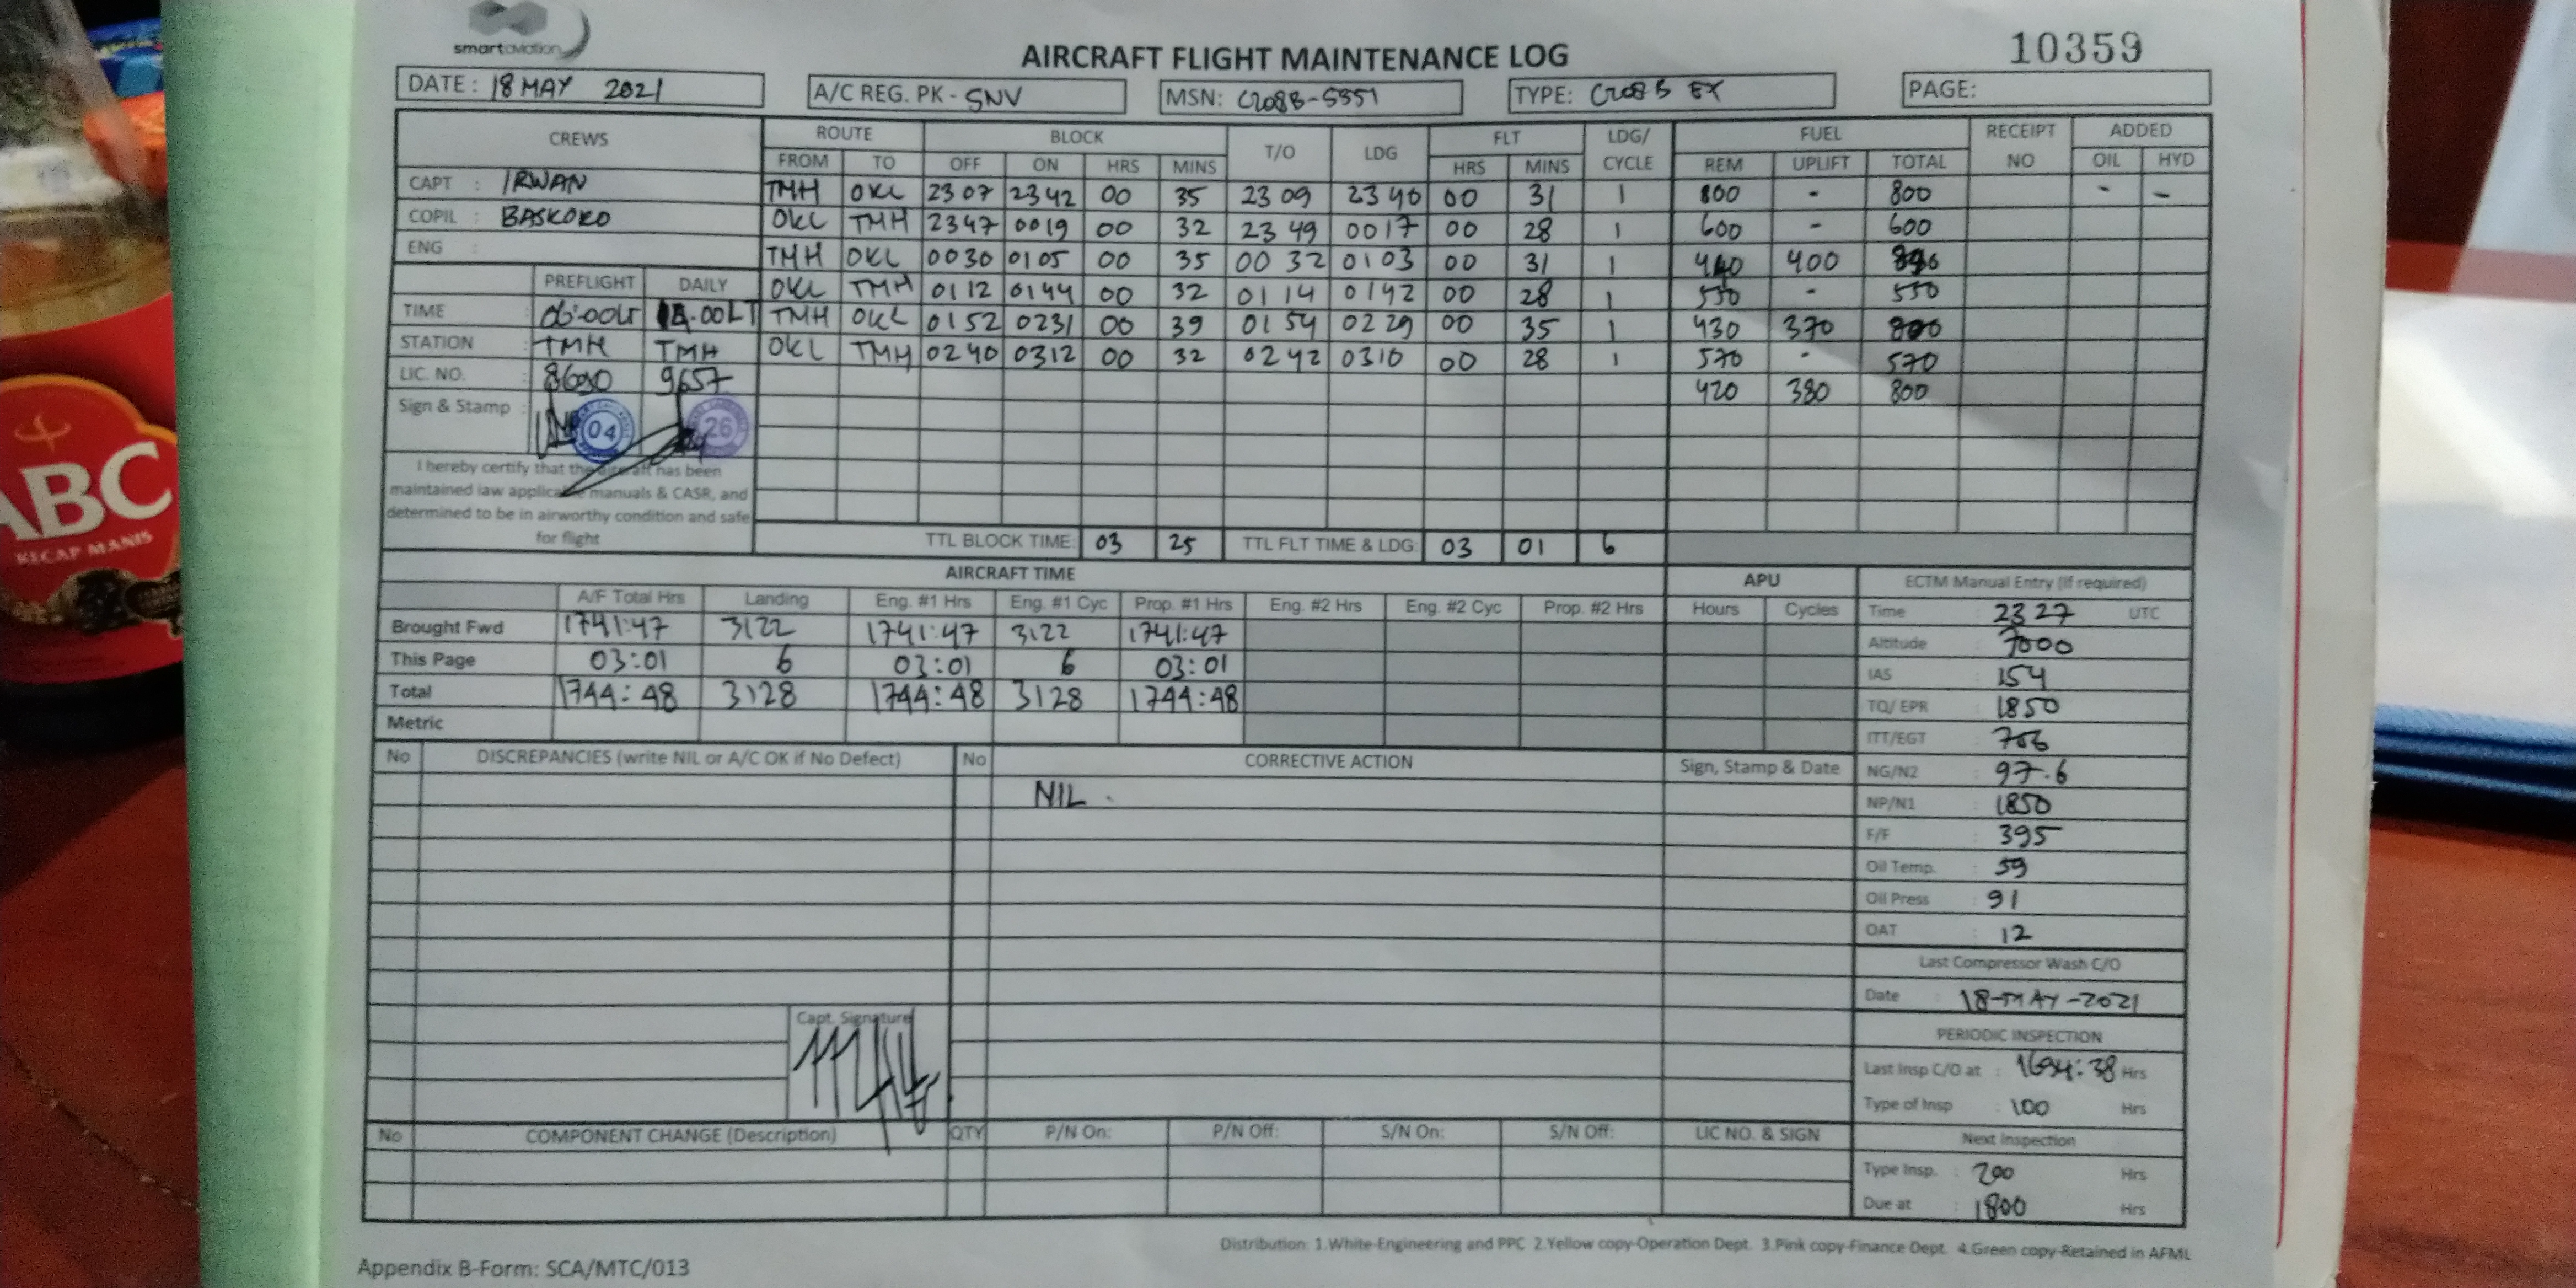 smartaviation
AIRCRAFT FLIGHT MAINTENANCE LOG
10359
DATE : 18 MAY 2021
A/C REG. PK - SNV
MSN: C208B-5351
TYPE: C208B EX
PAGE:
CREWS ROUTE BLOCK T/O LDG FLT LDG/ CYCLE FUEL RECEIPT NO ADDED
FROM TO OFF ON HRS MINS HRS MINS REM UPLIFT TOTAL OIL HYD
CAPT : IRWAN
COPIL : BASKORO
ENG :
TMH OKL 2307 2342 00 35 2309 2340 00 31 1 800 - 800 - -
OKL TMH 2347 0019 00 32 2349 0017 00 28 1 600 - 600
TMH OKL 0030 0105 00 35 0032 0103 00 31 1 400
OKL TMH 0112 0144 00 32 0114 0142 00 28 1 550 - 550
TMH OKL 0152 0231 00 39 0154 0229 00 35 1 430 370 800
OKL TMH 0240 0312 00 32 0242 0310 00 28 1 570 - 570
420 380 800
PREFLIGHT DAILY
TIME : 06:00LT .00LT
STATION : TMH TMH
LIC. NO. : 9657
Sign & Stamp : 04 26
I hereby certify that the aircraft has been
maintained iaw applicable manuals & CASR, and
determined to be in airworthy condition and safe
for flight
TTL BLOCK TIME: 03 25 TTL FLT TIME & LDG: 03 01 6
AIRCRAFT TIME
APU
A/F Total Hrs Landing Eng. #1 Hrs Eng. #1 Cyc Prop. #1 Hrs Eng. #2 Hrs Eng. #2 Cyc Prop. #2 Hrs Hours Cycles
Brought Fwd 1741:47 3122 1741:47 3122 1741:47
This Page 03:01 6 03:01 6 03:01
Total 1744:48 3128 1744:48 3128 1744:48
Metric
ECTM Manual Entry (if required)
Time : 2327 UTC
Altitude : 7000
IAS : 154
TQ/ EPR : 1850
ITT/EGT : 706
NG/N2 : 97.6
NP/N1 : 1850
F/F : 395
Oil Temp. : 59
Oil Press : 91
OAT : 12
Last Compressor Wash C/O
Date : 18-MAY-2021
PERIODIC INSPECTION
Last Insp C/O at : 1694:38 Hrs
Type of Insp : 100 Hrs
Next Inspection
Type Insp. : 200 Hrs
Due at : 1800 Hrs
No DISCREPANCIES (write NIL or A/C OK if No Defect) No CORRECTIVE ACTION Sign, Stamp & Date
NIL .
Capt. Signature
No COMPONENT CHANGE (Description) QTY P/N On: P/N Off: S/N On: S/N Off: LIC NO. & SIGN
Distribution: 1.White-Engineering and PPC 2.Yellow copy-Operation Dept. 3.Pink copy-Finance Dept. 4.Green copy-Retained in AFML
Appendix B-Form: SCA/MTC/013
ABC
KECAP MANIS